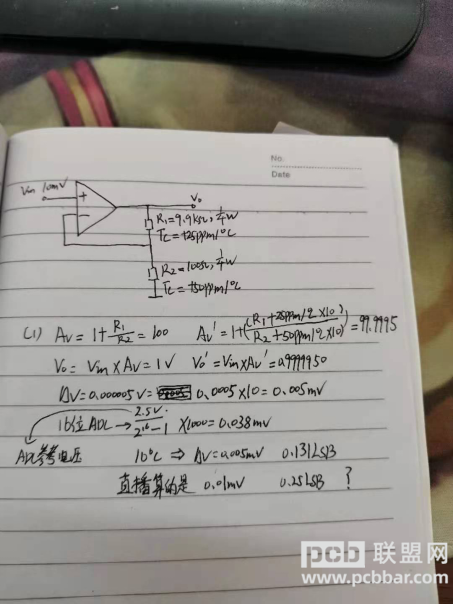 No.
Date
Vin 10mV
+
−
Vo
R1=9.9kΩ, 1/4W
Tc=+25ppm/℃
R2=100Ω, 1/4W
Tc=+50ppm/℃
(1) Av=1+R1/R2=100 Av'=1+(R1+25ppm/℃×10)/(R2+50ppm/℃×10)=99.9995
Vo=Vin×Av=1V Vo'=Vin×Av'=0.9999950
ΔV=0.000005V= 0.0005×10=0.005mV
16位ADC→2.5V/2^16-1 ×1000=0.038mV
ADC参考电压 10℃⇒ΔV=0.005mV 0.131LSB
直播算的是 0.01mV 0.25LSB ?
pcb联盟网
www.pcbbar.com